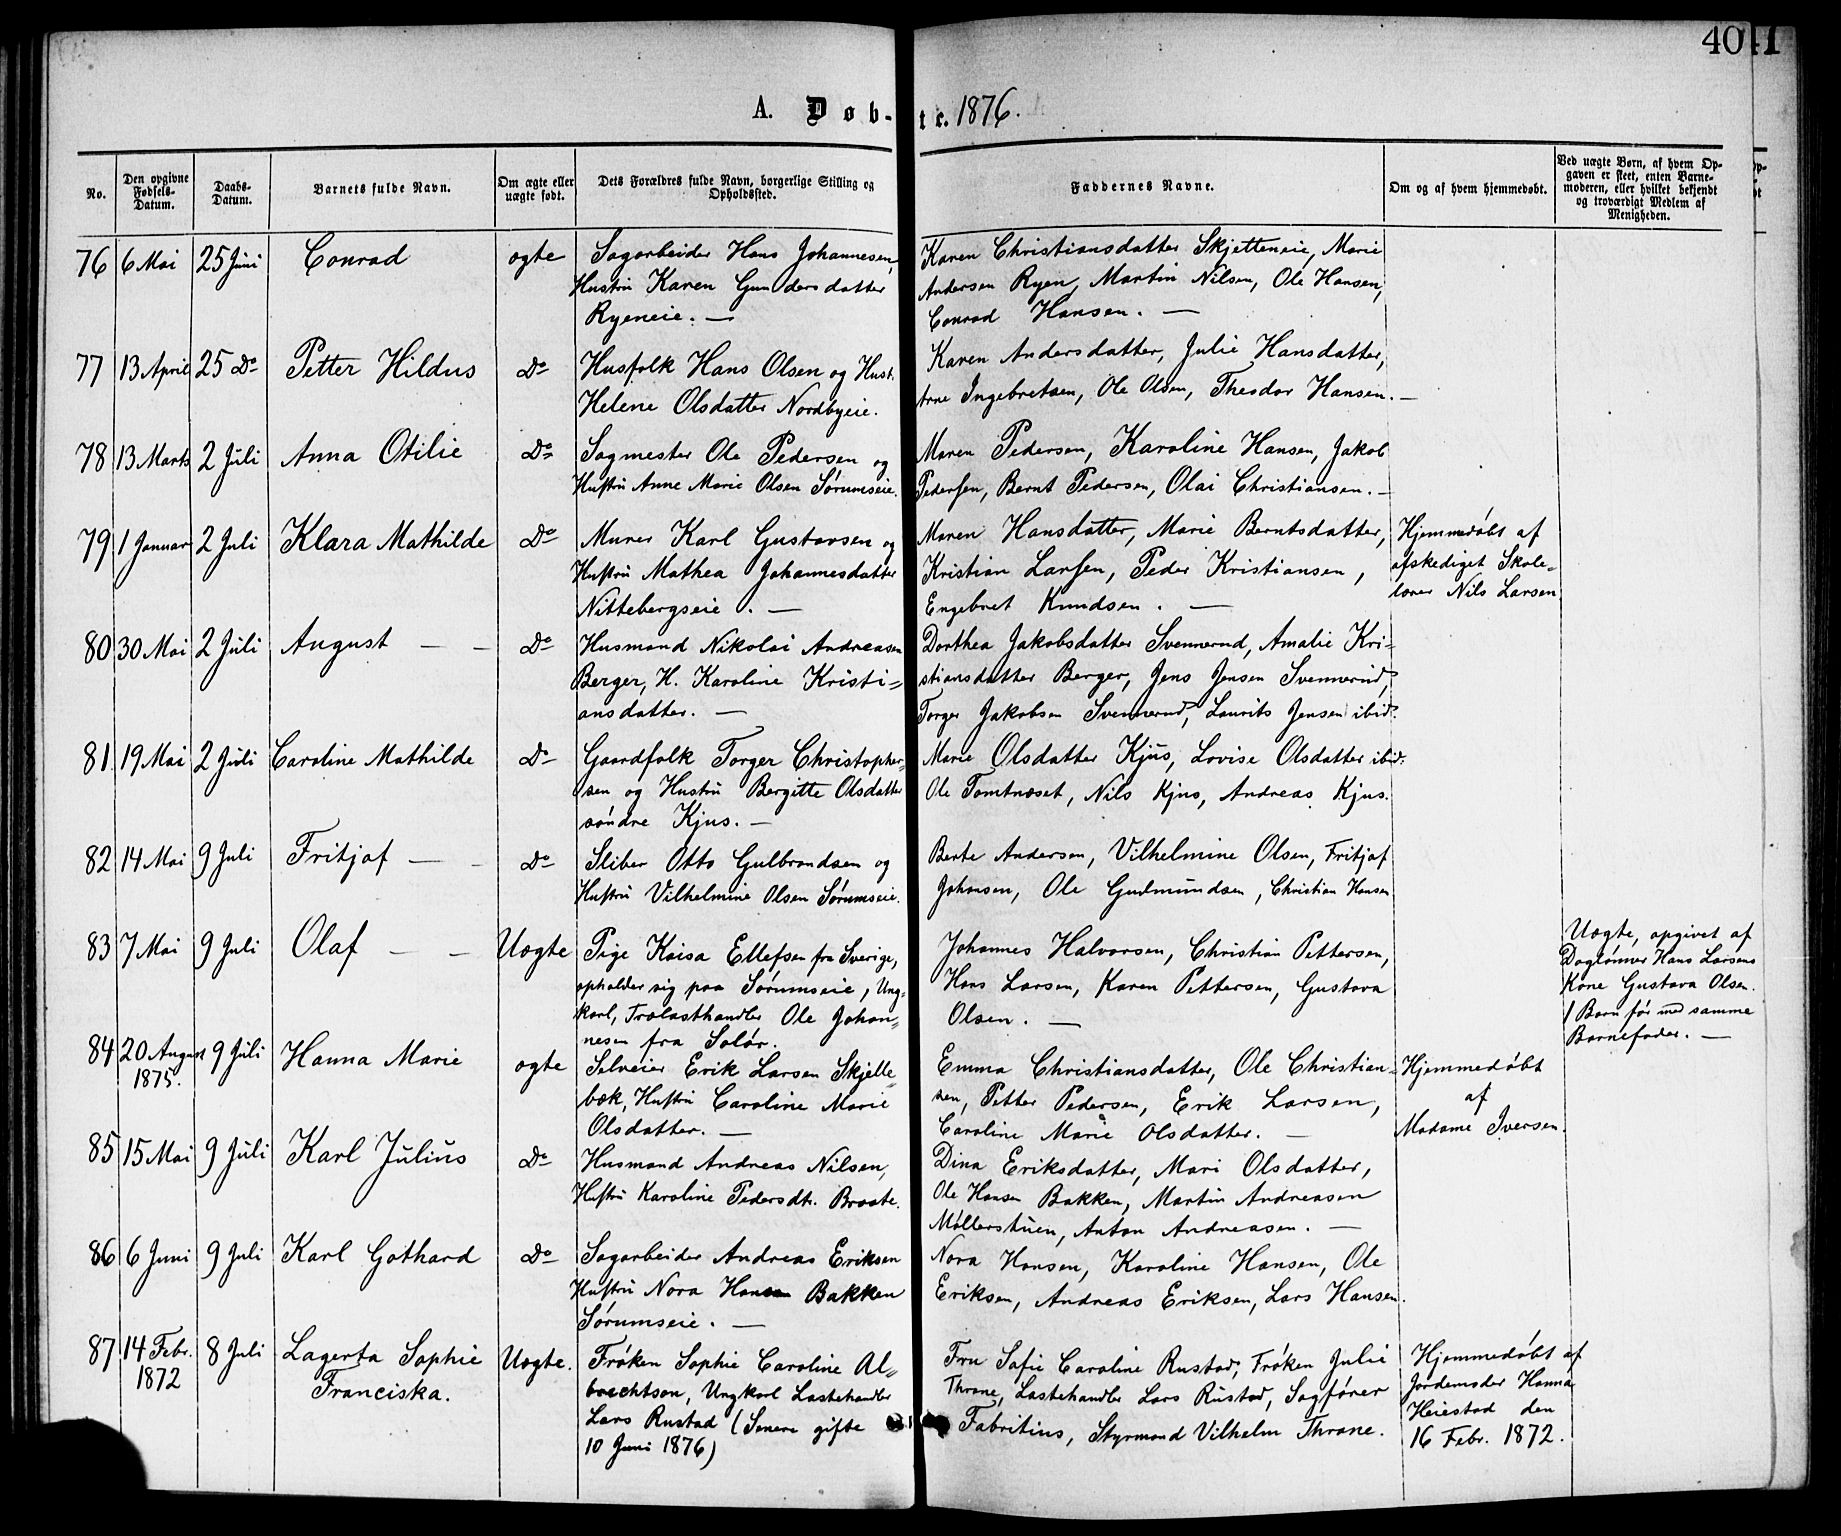 40
41
A. Døb-
te. 1876.
No.
Den opgivne
Fødsels-
Datum.
Daabs-
Datum.
Barnets fulde Navn.
Om ægte eller
uægte født.
Dets Forældres fulde Navn, borgerlige Stilling og
Opholdssted.
Faddernes Navne.
Om og af hvem hjemmedøbt.
Ved uægte Børn, af hvem Op-
gaven er skeet, enten Barne-
moderen, eller hvilket bekjendt
og troværdigt Medlem af
Menigheden.
76 6 Mai 25 Juni Conrad ægte
Sagarbeider Hans Johannesen,
Hustru Karen Gundersdatter
Ryeneie. —
Karen Christiansdatter Skjetteneie, Marie
Andersen Ryen, Martin Nilsen, Ole Hansen,
Conrad Hansen. —
77 13 April 25 Do Petter Hildus Do
Husfolk Hans Olsen og Hust.
Helene Olsdatter Nordbyeie.
Karen Andersdatter, Julie Hansdatter,
Arne Ingebretsen, Ole Olsen, Theodor Hansen. —
78 13 Marts 2 Juli Anna Otilie Do
Sagmester Ole Pedersen og
Hustru Anne Marie Olsen Sørumseie.
Maren Pedersen, Karoline Hansen, Jakob
Pedersen, Bernt Pedersen, Olai Christiansen. —
79 1 Januar 2 Juli Klara Mathilde Do
Murer Karl Gustavsen og
Hustru Mathea Johannesdatter
Nittebergseie. —
Maren Hansdatter, Marie Berntsdatter,
Kristian Larsen, Peder Kristiansen,
Engebret Knudsen. —
Hjemmedøbt af
afskediget Skole-
lærer Nils Larsen
80 30 Mai 2 Juli August — — Do
Husmand Nikolai Andreasen
Berger, H. Karoline Kristi-
ansdatter. —
Dorthea Jakobsdatter Svennerud, Amalie Kri-
stiansdatter Berger, Jens Jensen Svennerud,
Torger Jakobsen Svennerud, Laurits Jensen ibid.
81. 19 Mai 2 Juli Caroline Mathilde Do
Gaardfolk Torger Christopher-
sen og Hustru Bergitte Olsdatter
søndre Kjus. —
Marie Olsdatter Kjus, Lovise Olsdatter ibid.
Ole Tomtnæset, Nils Kjus, Andreas Kjus.
82 14 Mai 9 Juli Fritjof — — Do
Sliber Otto Gulbrandsen og
Hustru Vilhelmine Olsen Sørumseie.
Berte Andersen, Vilhelmine Olsen, Fritjof
Johansen, Ole Gudmundsen, Christian Hansen
83 7 Mai 9 Juli Olaf — — Uægte
Pige Kaisa Ellefsen fra Sverige,
opholder sig paa Sørumseie, Ung-
karl, Trælasthandler Ole Johan-
nesen fra Solør.
Johannes Halvorsen, Christian Pettersen,
Hans Larsen, Karen Pettersen, Gustava
Olsen. —
Uægte, opgivet af
Daglønner Hans Larsens
Kone Gustava Olsen.
1 Barn før med samme
Barnefader. —
84 20 August 9 Juli Hanna Marie ægte
1875.
Selveier Erik Larsen Skjelle-
bæk, Hustru Caroline Marie
Olsdatter. —
Emma Christiansdatter, Ole Christian-
sen, Petter Pedersen, Erik Larsen,
Caroline Marie Olsdatter. —
Hjemmedøbt
af
Madame Iversen.
85 15 Mai 9 Juli Karl Julius Do
Husmand Andreas Nilsen,
Hustru Karoline Pedersdt. Braate.
Dina Eriksdatter, Mari Olsdatter,
Ole Hansen Bakken, Martin Andreasen
Møllerstuen, Anton Andreasen. —
86 6 Juni 9 Juli Karl Gothard Do
Sagarbeider Andreas Eriksen
Hustru Nora Hansen Bakken
Sørumseie. —
Nora Hansen, Karoline Hansen, Ole
Eriksen, Andreas Eriksen, Lars Hansen.
87 14 Febr. 8 Juli Lagerta Sophie Uægte.
1872 Franciska.
Frøken Sophie Caroline Al-
brechtson, Ungkarl Lastehandler
Lars Rustad (Senere gifte
10 Juni 1876)
Fru Sofie Caroline Rustad, Frøken Julie
Thrane, Lastehandler Lars Rustad, Sagfører
Fabritius, Styrmand Vilhelm Thrane.
Hjemmedøbt af
Jordemoder Hanna
Heiestad den
16 Febr. 1872.